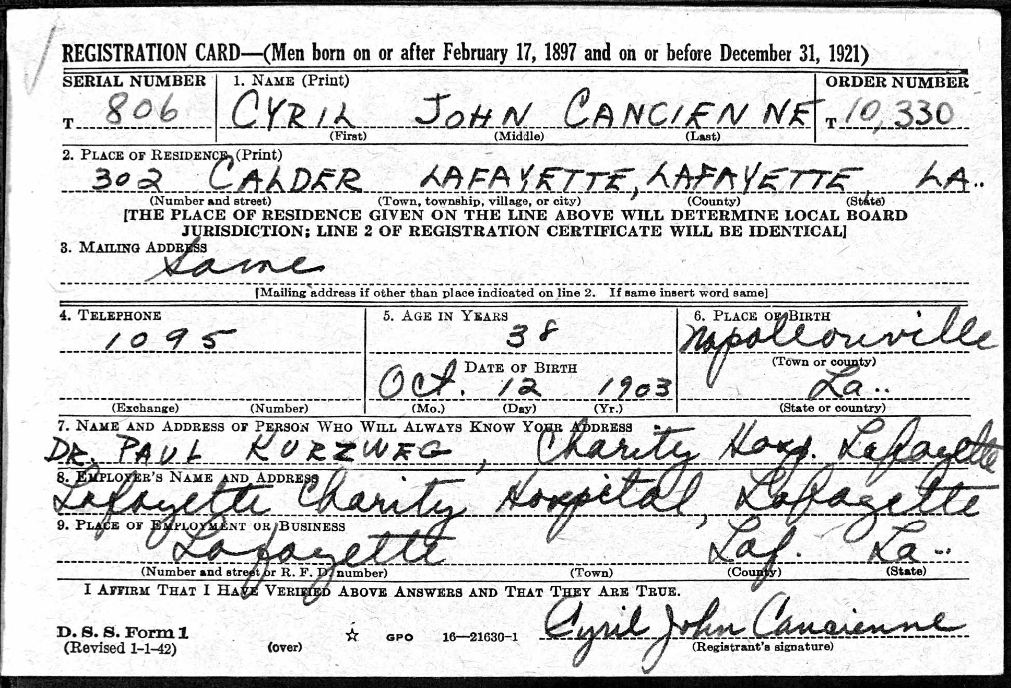 REGISTRATION CARD—(Men born on or after February 17, 1897 and on or before December 31, 1921)
SERIAL NUMBER 1. NAME (Print) ORDER NUMBER
T 806 CYRIL JOHN CANCIENNE T 10,330
(First) (Middle) (Last)
2. PLACE OF RESIDENCE (Print)
302 CALDER LAFAYETTE, LAFAYETTE, LA..
(Number and street) (Town, township, village, or city) (County) (State)
[THE PLACE OF RESIDENCE GIVEN ON THE LINE ABOVE WILL DETERMINE LOCAL BOARD
JURISDICTION; LINE 2 OF REGISTRATION CERTIFICATE WILL BE IDENTICAL]
3. MAILING ADDRESS
Same
[Mailing address if other than place indicated on line 2. If same insert word same]
4. TELEPHONE 5. AGE IN YEARS 6. PLACE OF BIRTH
1095 38 Napoleonville
DATE OF BIRTH (Town or county)
Oct. 12 1903 La..
(Exchange) (Number) (Mo.) (Day) (Yr.) (State or country)
7. NAME AND ADDRESS OF PERSON WHO WILL ALWAYS KNOW YOUR ADDRESS
DR. PAUL KURZWEG, Charity Hosp. Lafayette
8. EMPLOYER'S NAME AND ADDRESS
Lafayette Charity Hospital, Lafayette
9. PLACE OF EMPLOYMENT OR BUSINESS
Lafayette Laf. La..
(Number and street or R. F. D. number) (Town) (County) (State)
I AFFIRM THAT I HAVE VERIFIED ABOVE ANSWERS AND THAT THEY ARE TRUE.
D. S. S. Form 1 GPO 16—21630-1 Cyril John Cancienne
(Revised 1-1-42) (over) (Registrant's signature)